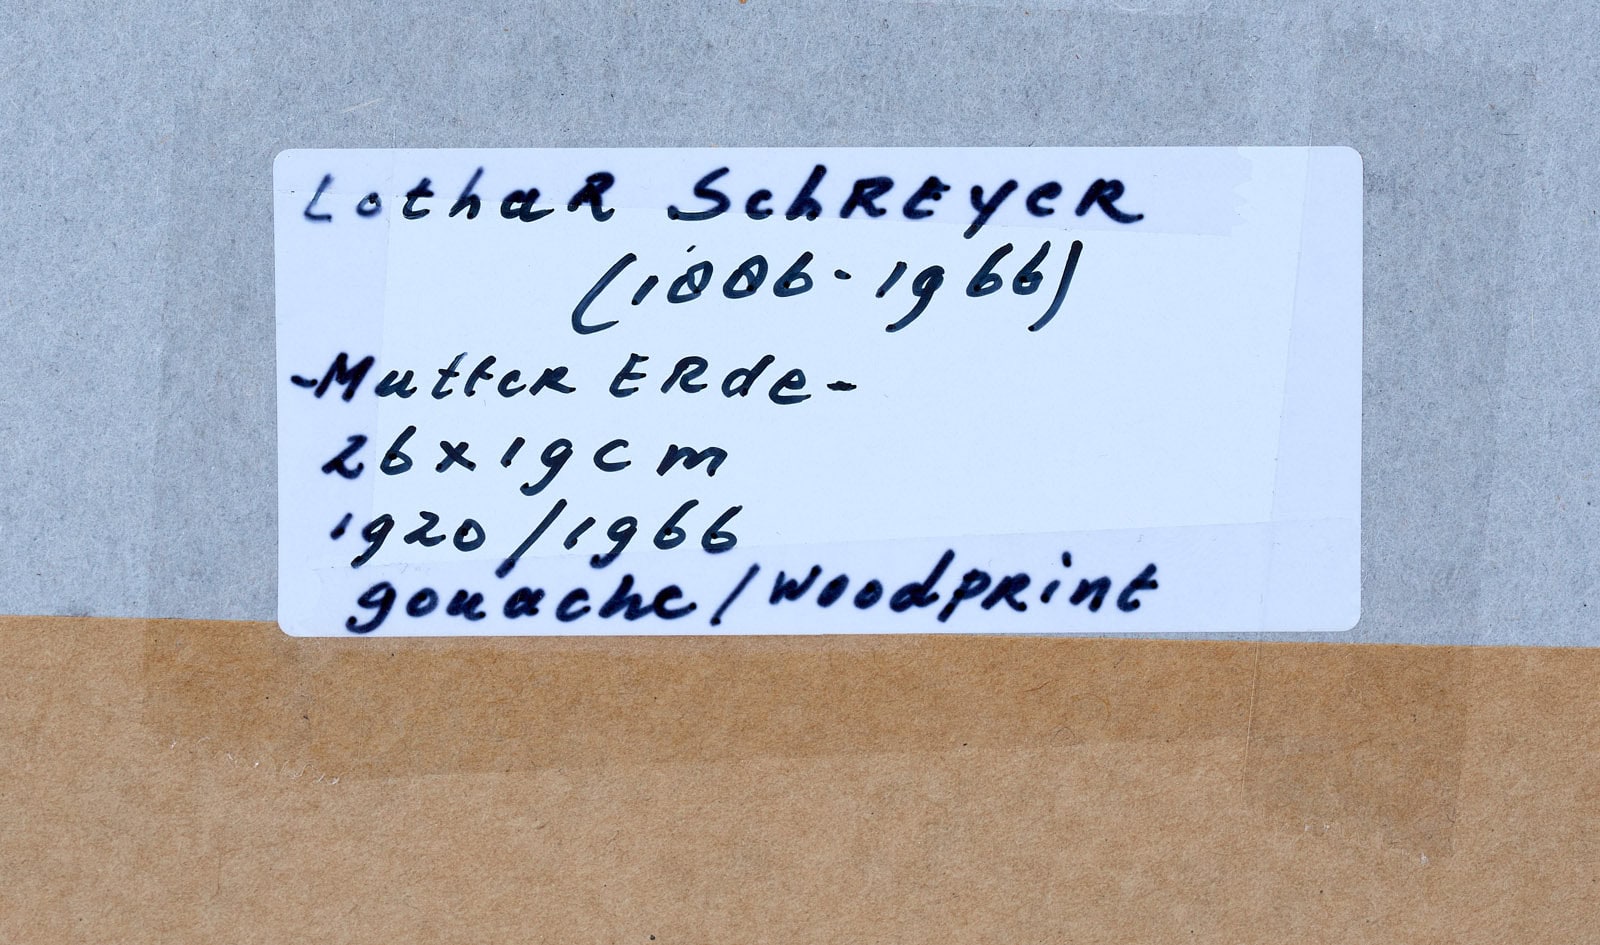 Lothar Schreyer
(1886-1966)
-Mutter Erde-
26x19cm
1920/1966
gouache/woodprint